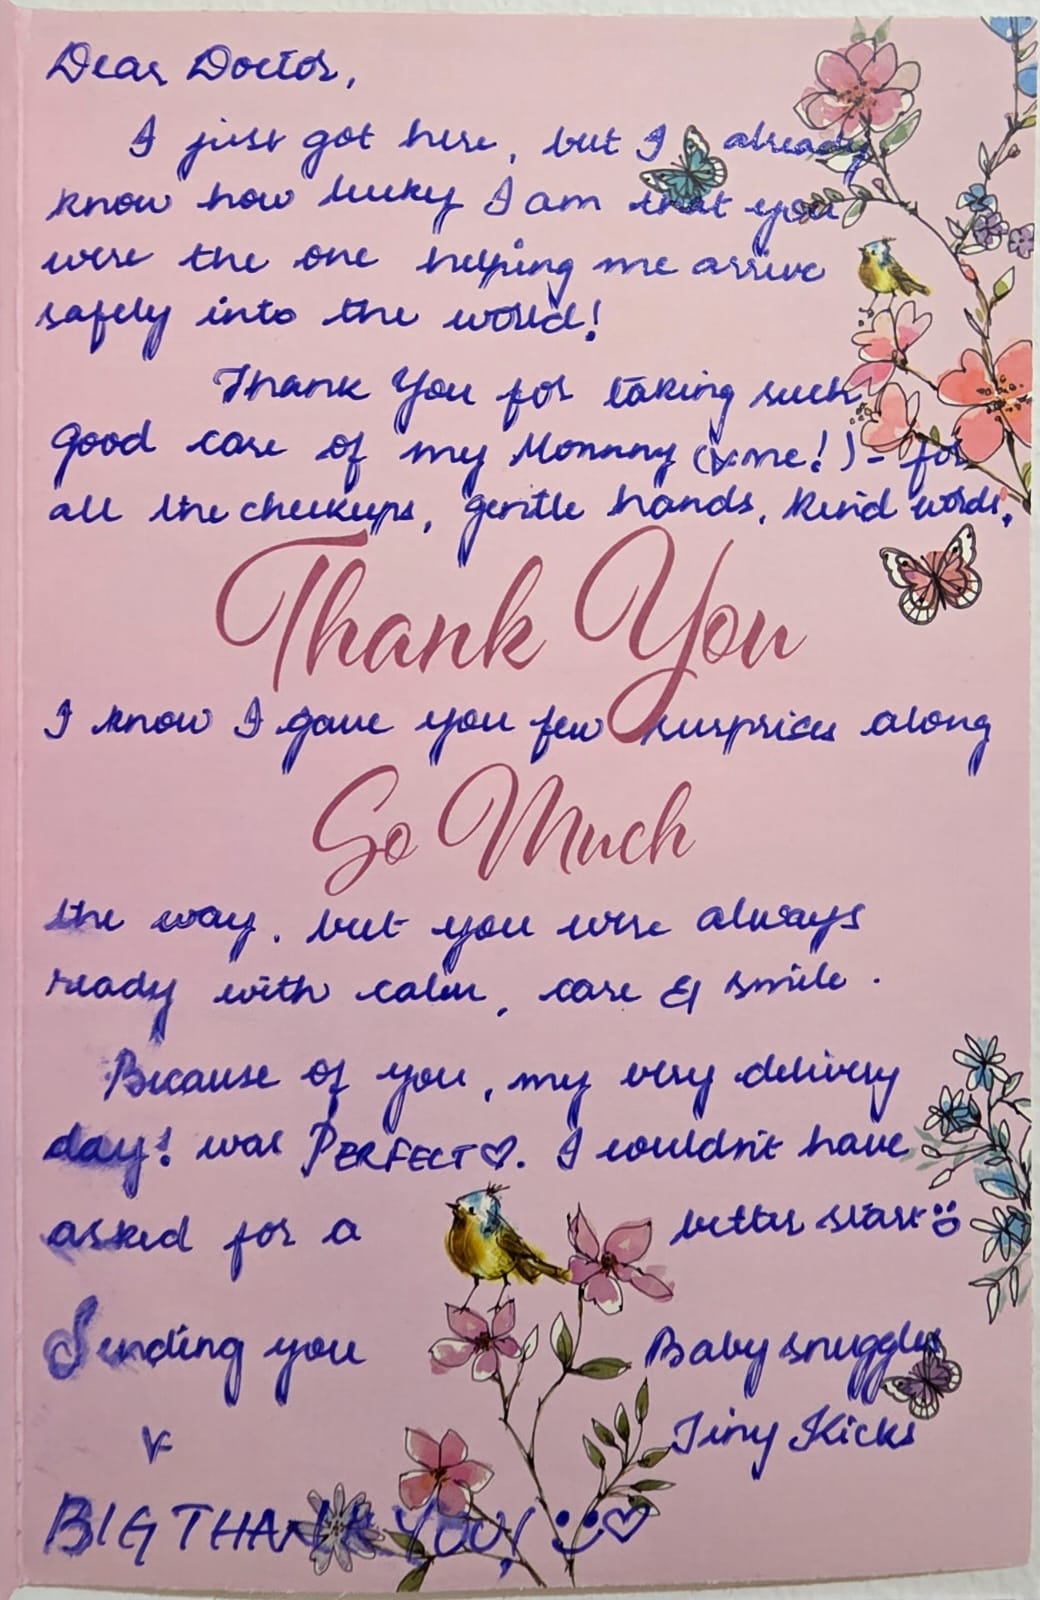 Dear Doctor,
I just got here, but I already
know how lucky I am that you
were the one helping me arrive
safely into the world!
Thank You for taking such
good care of my Mommy (& me!) - for
all the checkups, gentle hands, kind words,
Thank You
I know I gave you few surprises along
So Much
the way, but you were always
ready with calm, care & smile.
Because of you, my very delivery
day! was PERFECT♡. I wouldn't have
asked for a better start☺
Sending you Baby snuggles
& Tiny Kicks
BIG THANK YOU! ☺♡